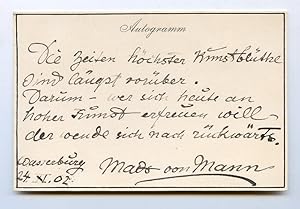 Autogramm
Die Zeiten höchster Kunstblüthe
sind längst vorüber.
Darum – wer sich heute an
hoher Kunst erfreuen will
der wende sich nach rückwärts.
Wasserburg
24. X. 02.
Mads von Mann